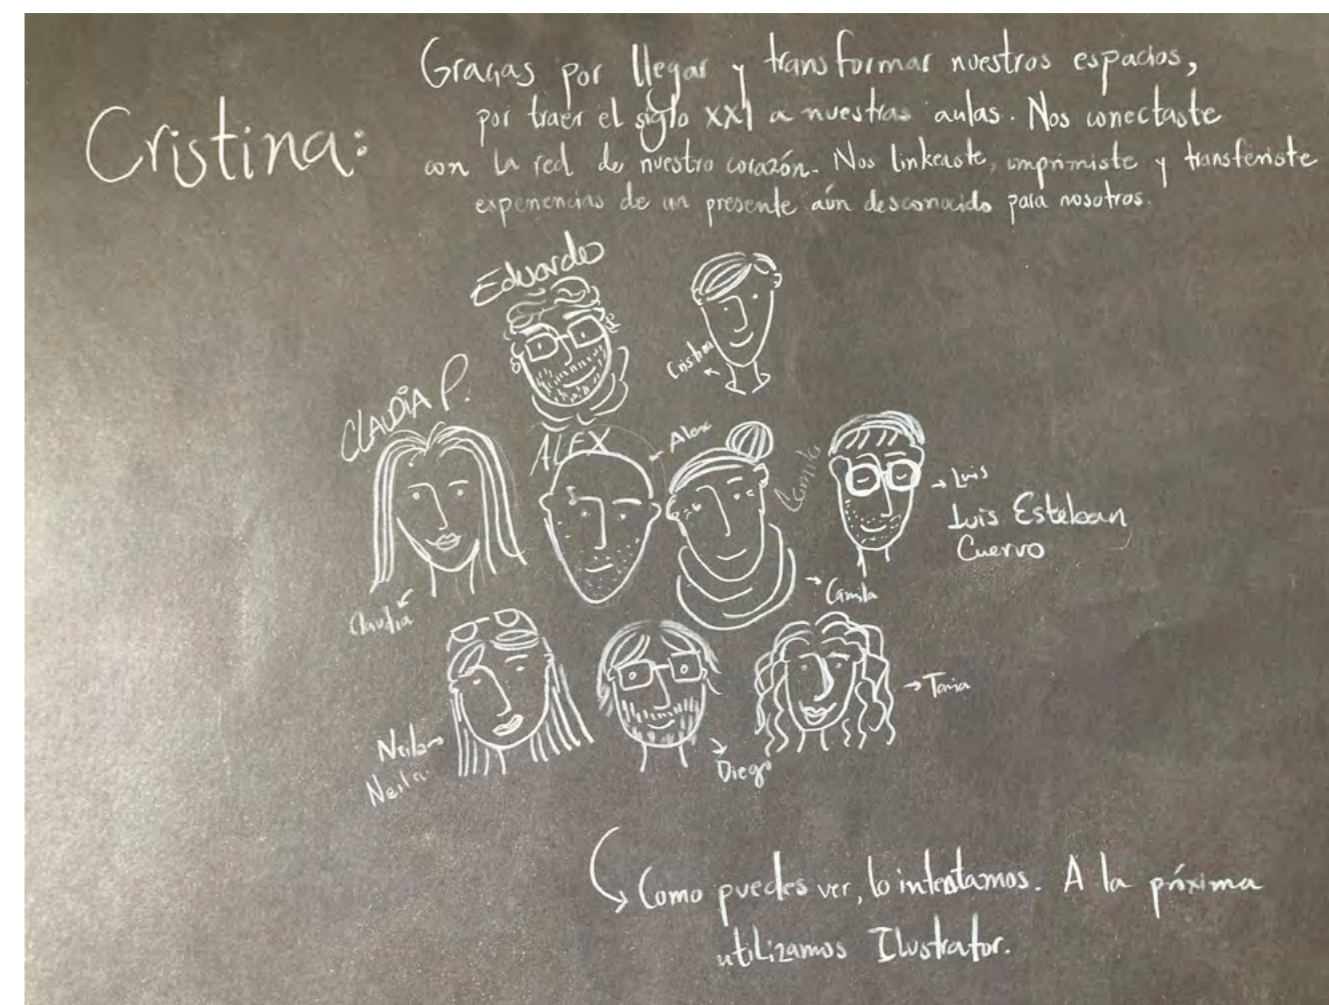 Cristina:
Gracias por llegar y transformar nuestros espacios,
por traer el siglo XXI a nuestras aulas. Nos conectaste
con la red de nuestro corazón. Nos linkeaste, imprimiste y transferiste
experiencias de un presente aún desconocido para nosotros.
Eduardo
Cristina
CLAUDIA P.
ALEX
Alex
Camila
Luis
Luis Esteban
Cuervo
Claudia
Camila
Tania
Neila
Neila
Diego
Como puedes ver, lo intentamos. A la próxima
utilizamos Ilustrator.